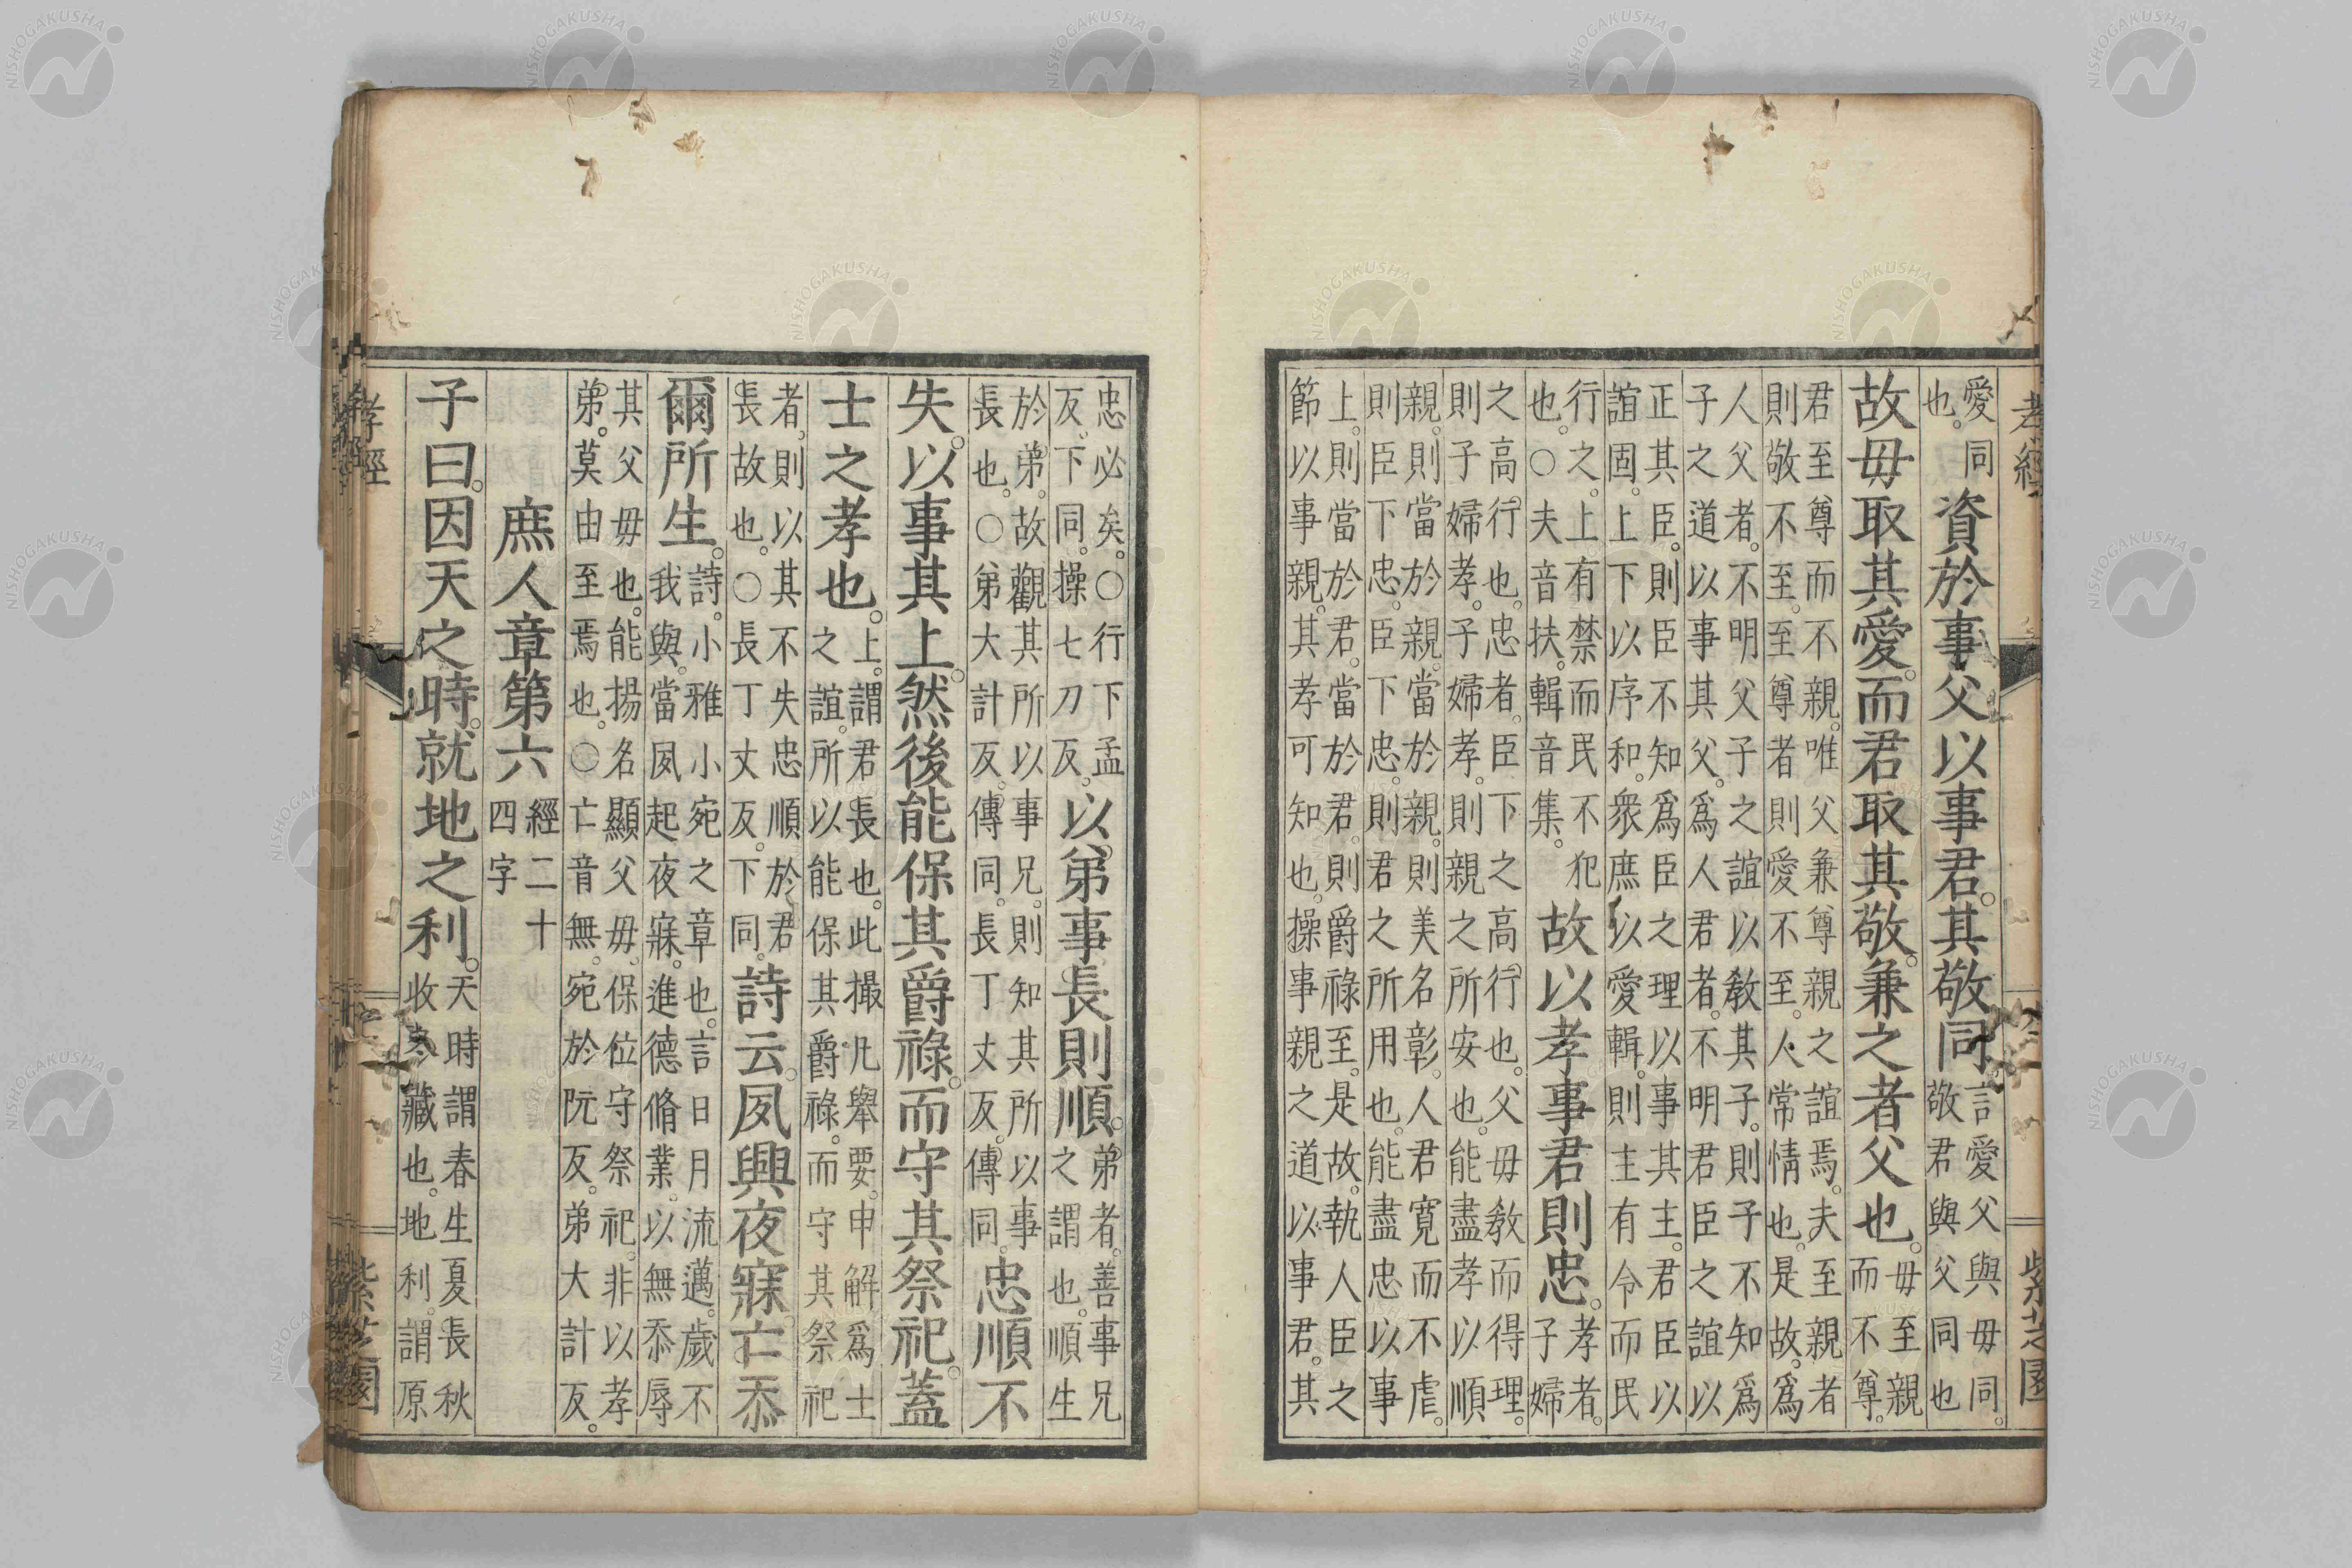 愛同
也。
資於事父以事君。其敬同
言愛父與毋同。
敬君與父同也
故毋取其愛。而君取其敬。兼之者父也。
毋至親
而不尊。
君至尊而不親。唯父兼尊親之誼焉。夫至親者
則敬不至。至尊者則愛不至。人常情也。是故。爲
人父者。不明父子之誼以敎其子。則子不知爲
子之道以事其父。爲人君者。不明君臣之誼以
正其臣。則臣不知爲臣之理以事其主。君臣以
誼固。上下以序和。衆庶以愛輯。則主有令而民
行之。上有禁而民不犯
也。○夫音扶。輯音集。
故以孝事君則忠。
孝者。
子婦
之高行也。忠者。臣下之高行也。父毋敎而得理。
則子婦孝。子婦孝。則親之所安也。能盡孝以順
親。則當於親。當於親。則美名彰。人君寬而不虐。
則臣下忠。臣下忠。則君之所用也。能盡忠以事
上。則當於君。當於君。則爵祿至。是故。執人臣之
節以事親。其孝可知也。操事親之道以事君。其
忠必矣。○行下孟
反。下同。操七刀反。
以弟事長則順。
弟者。善事兄
之謂也。順生
於弟。故觀其所以事兄。則知其所以事
長也。○弟大計反。傳同。長丁丈反。傳同。
忠順不
失。以事其上。然後能保其爵祿。而守其祭祀。蓋
士之孝也。
上。謂君長也。此撮凡舉要。申解爲士
之誼。所以能保其爵祿。而守其祭祀
者。則以其不失忠順於君
長故也。○長丁丈反。下同。
詩云。夙興夜寐。亡忝
爾所生。
詩。小雅小宛之章也。言日月流邁。歲不
我與。當夙起夜寐。進德脩業。以無忝辱
其父毋也。能揚名顯父毋。保位守祭祀。非以孝
弟。莫由至焉也。○亡音無。宛於阮反。弟大計反。
庶人章第六
經二十
四字
子曰。因天之時。就地之利。
天時謂春生夏長秋
收冬藏也。地利。謂原
孝經
紫芝園
NISHOGAKUSHA